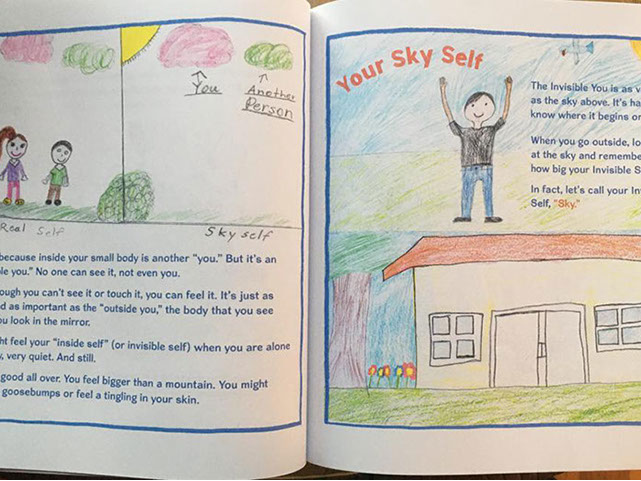 You
Another
Person
Real Self
Sky self
because inside your small body is another "you." But it's an
le you." No one can see it, not even you.
ough you can't see it or touch it, you can feel it. It's just as
d as important as the "outside you," the body that you see
ou look in the mirror.
ht feel your "inside self" (or invisible self) when you are alone
, very quiet. And still.
good all over. You feel bigger than a mountain. You might
goosebumps or feel a tingling in your skin.
Your Sky Self
The Invisible You is as v
as the sky above. It's ha
know where it begins or
When you go outside, lo
at the sky and remembe
how big your Invisible S
In fact, let's call your In
Self, "Sky."